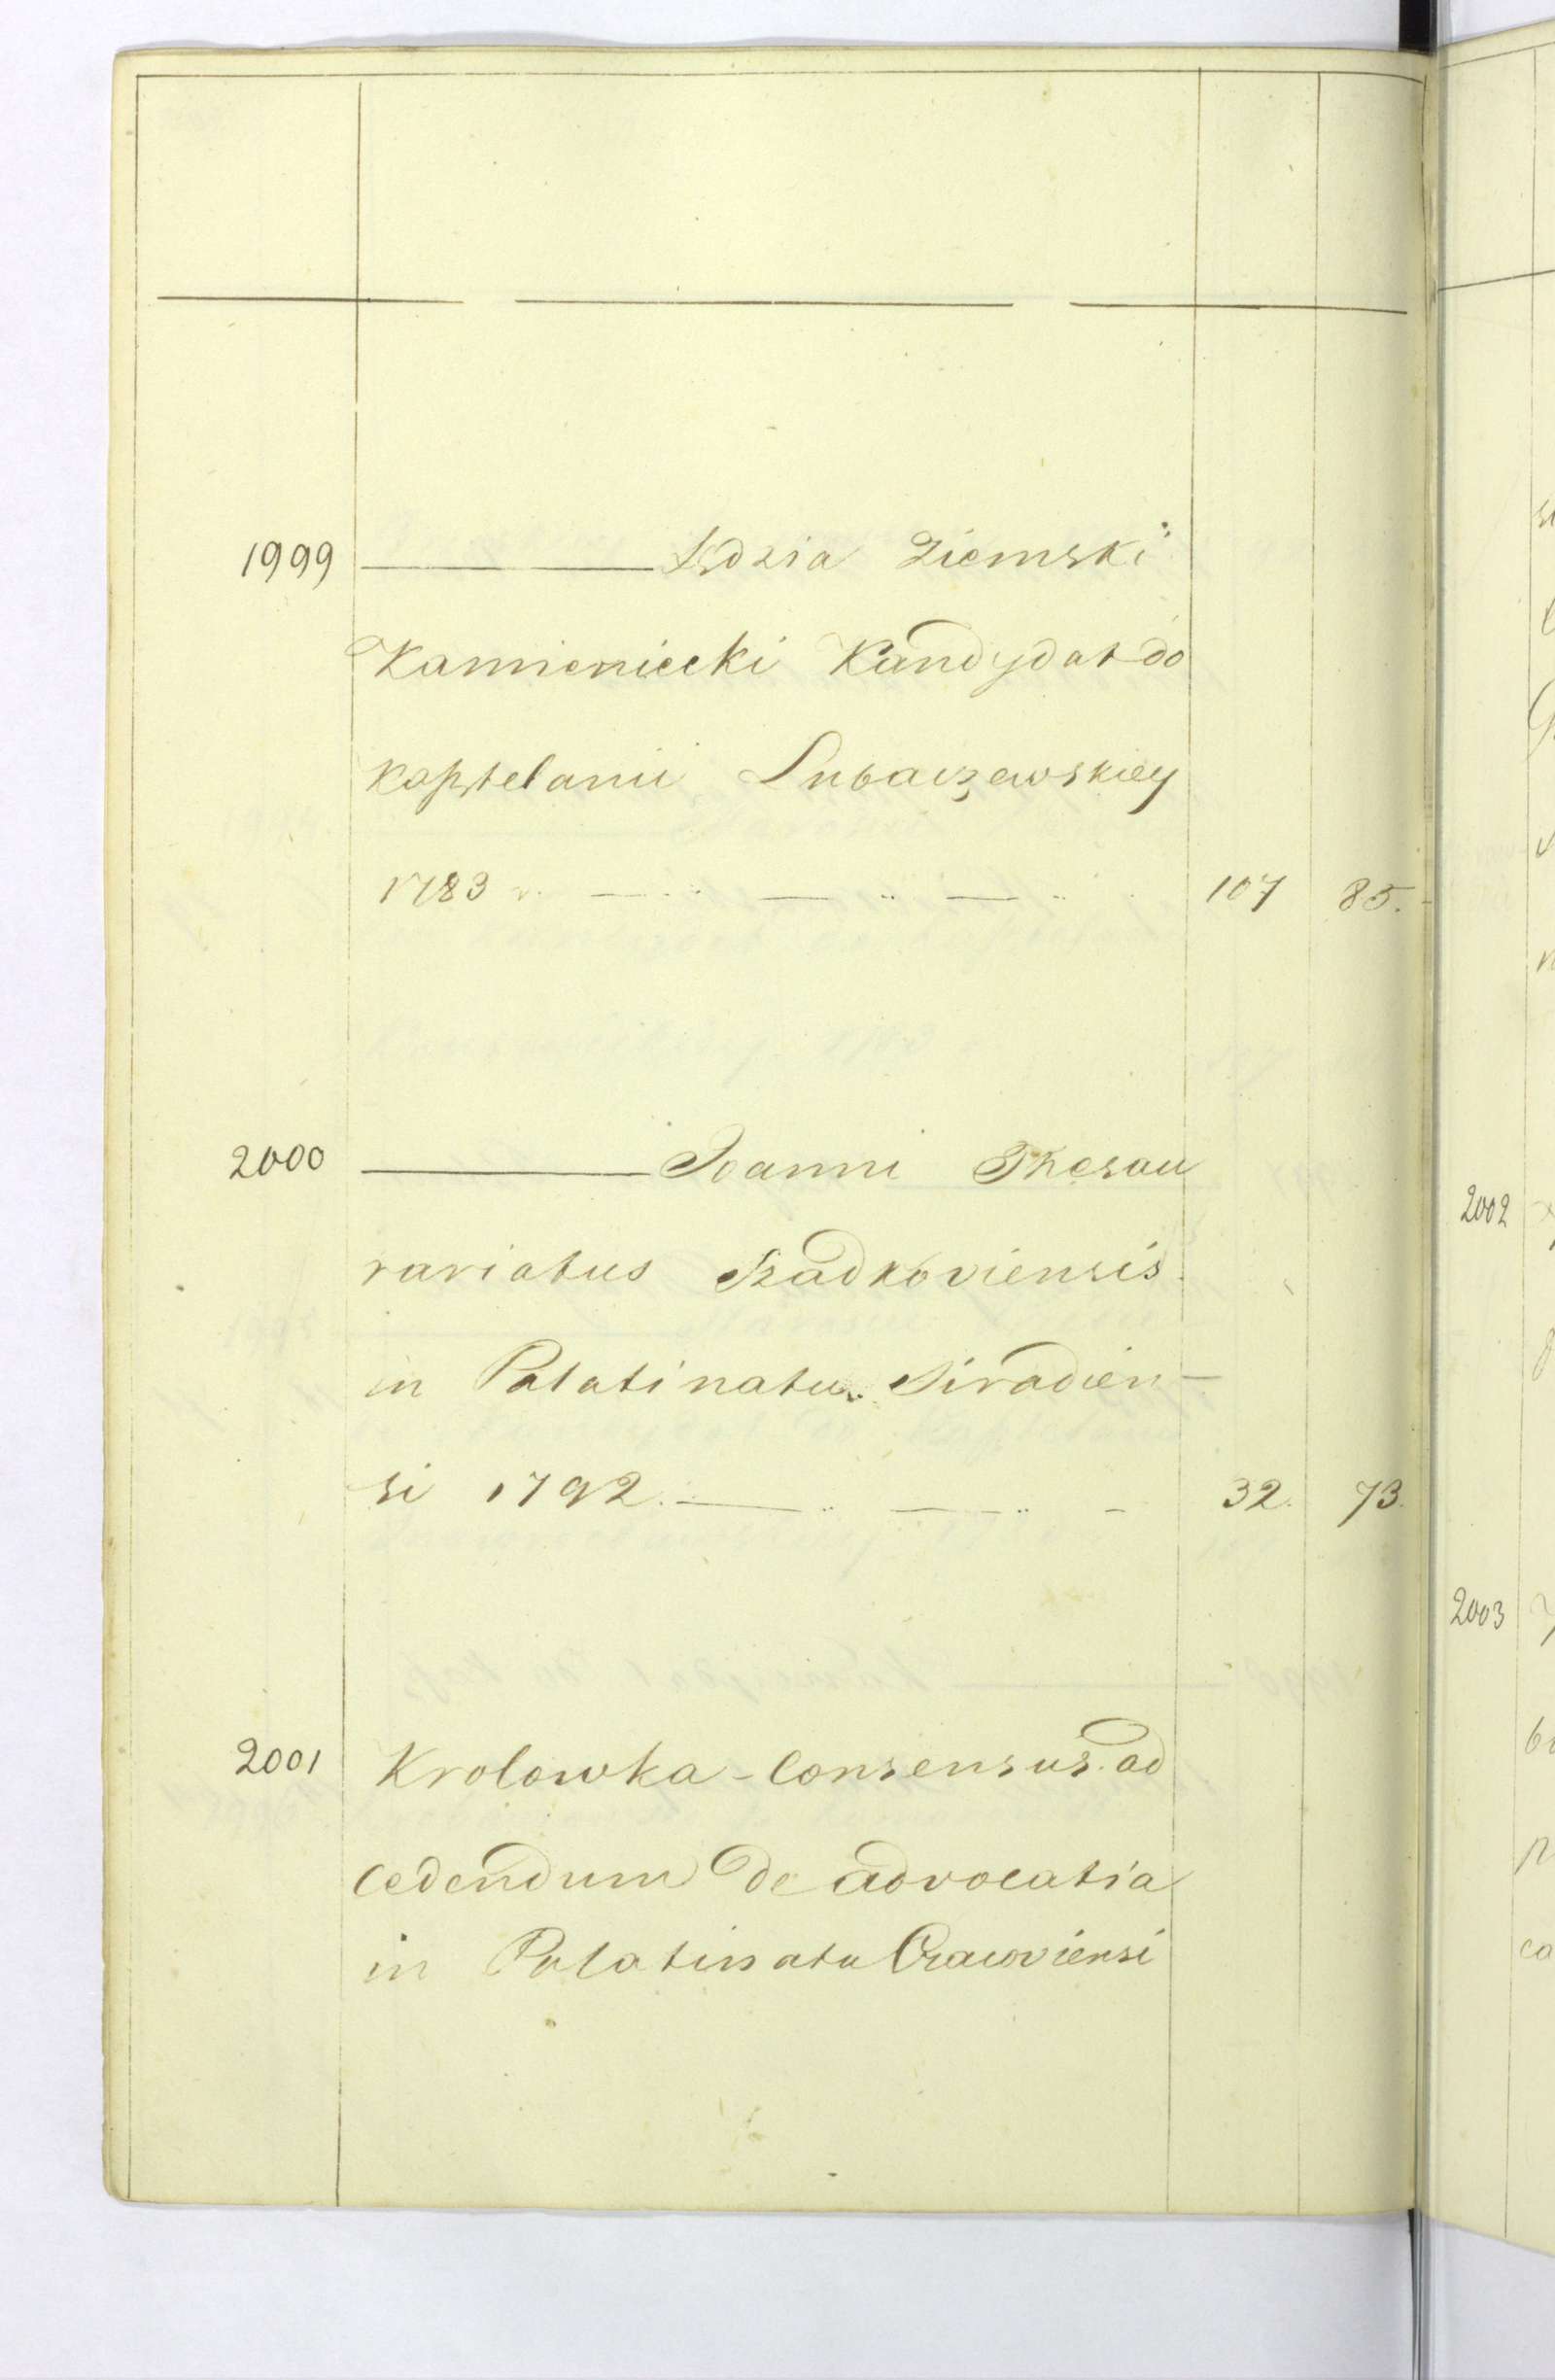 1999 ———— Sędzia Ziemski
Kamieniecki Kandydat do
kasztelanii Lubaczewskiey
1783 r. — .. — .. — .. 107 85.
2000 ———— Joanni Thesau
rariatus Szadkoviensis
in Palatinatu Siradien-
si 1792. — .. — .. - 32. 73.
2001 Krolowka - Consensus ad
cedendum de advocatia
in Palatinatu Cracoviensi
2002
2003